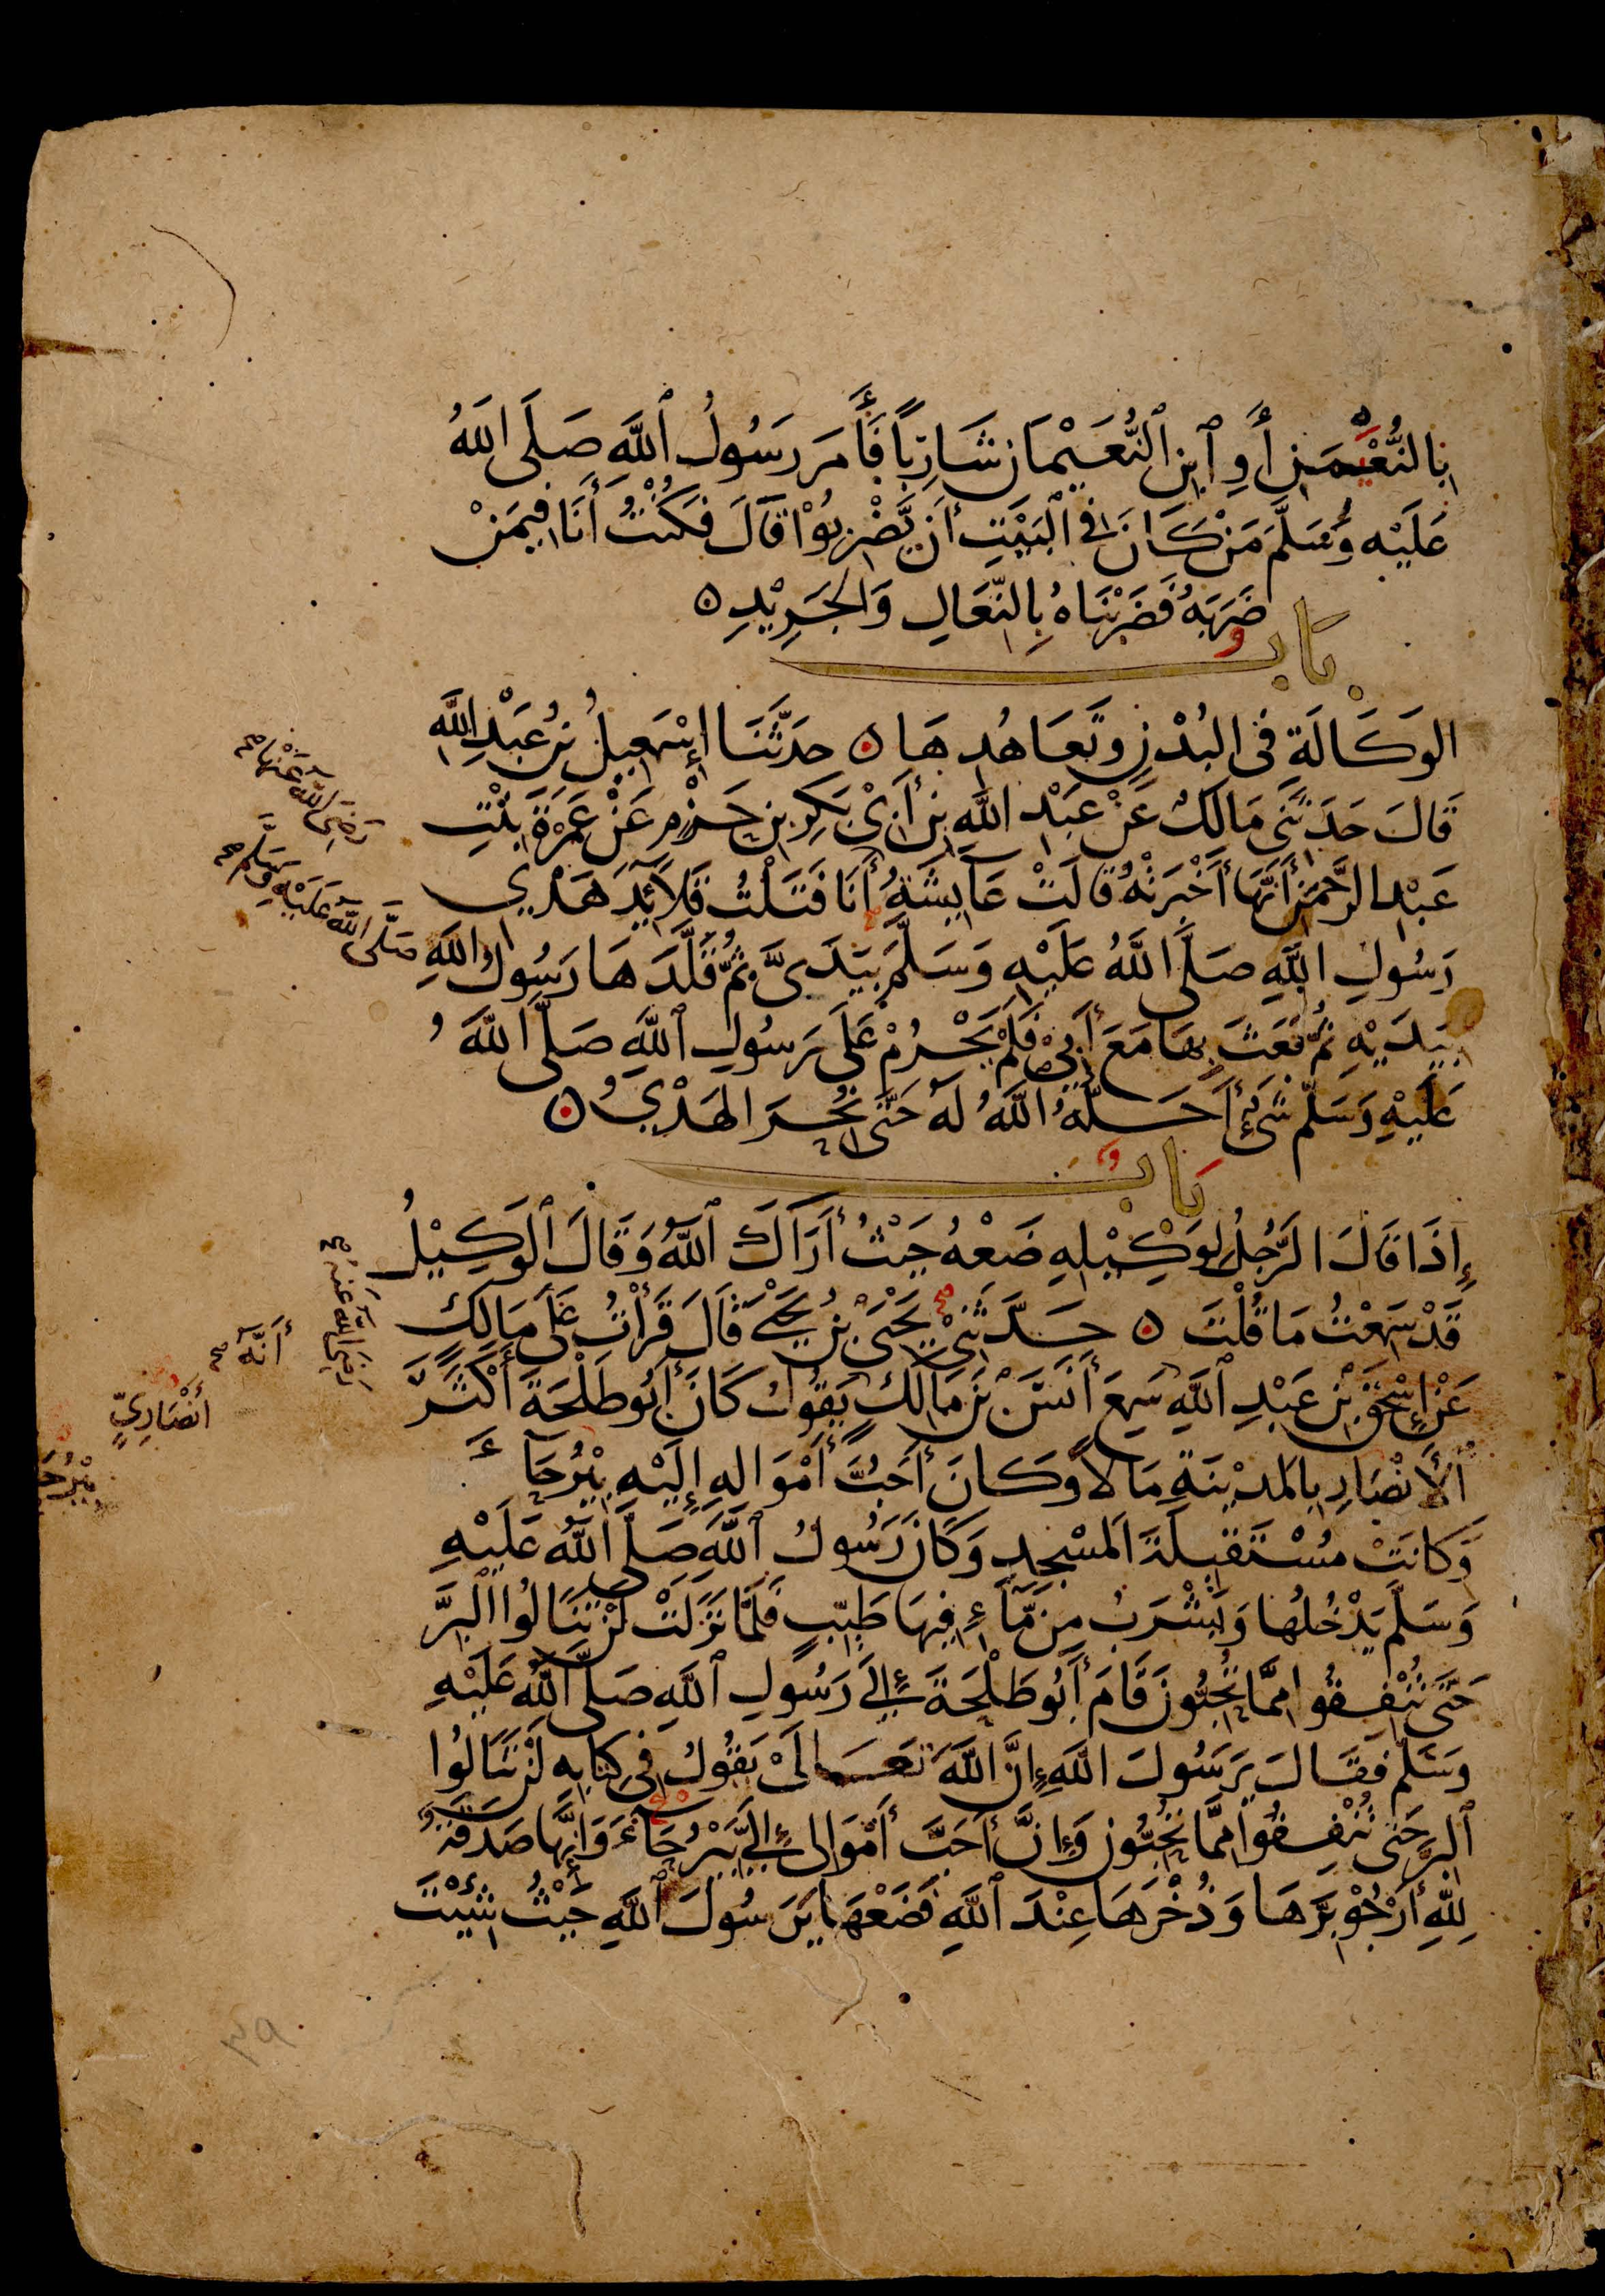 بِالنُّعَيْمَنِ أَوِ ٱبْنِ ٱلنُّعَيْمَانِ شَارِبًا فَأَمَرَ رَسُولُ ٱللَّهِ صَلَّى اللَّهُ
عَلَيْهِ وَسَلَّمَ مَنْ كَانَ فِى ٱلْبَيْتِ أَن يَّضْرِبُوْا قَالَ فَكُنْتُ أَنَا فِيمَنْ
ضَرَبَهُ فَضَرَبْنَاهُ بِالنِّعَالِ وَالْجَرِيْدِ ۝
بَابُ
الوَكَالَةِ فِى البُدْنِ وَتَعَاهُدِهَا ۝ حَدَّثَنَا إِسْمَعِيلُ بْنُ عَبْدِ اللَّهِ
قَالَ حَدَّثَنِى مَالِكٌ عَنْ عَبْدِ اللَّهِ بْنِ أَبِىْ بَكْرِ بْنِ حَزْمٍ عَنْ عَمْرَةَ بِنْتِ
عَبْدِ الرَّحْمَنِ أَنَّهَا أَخْبَرَتْهُ قَالَتْ عَائِشَةُ أَنَا فَتَلْتُ قَلَائِدَ هَدْيِ
رَسُولِ اللَّهِ صَلَّى اللَّهُ عَلَيْهِ وَسَلَّمَ بِيَدَىَّ ثُمَّ قَلَّدَهَا رَسُولُ اللَّهِ
بِيَدَيْهِ ثُمَّ بَعَثَ بِهَا مَعَ أَبِىْ فَلَمْ يَحْرُمْ عَلَى رَسُولِ ٱللَّهِ صَلَّى اللَّهُ
عَلَيْهِ وَسَلَّمَ شَىْءٌ أَحَلَّهُ اللَّهُ لَهُ حَتَّى نُحِرَ الْهَدْيُ ۝
بَابُ
إِذَا قَالَ الرَّجُلُ لِوَكِيْلِهِ ضَعْهُ حَيْثُ أَرَاكَ ٱللَّهُ وَقَالَ ٱلْوَكِيْلُ
قَدْ سَمِعْتُ مَا قُلْتَ ۝ حَدَّثَنِىْ يَحْيَى بْنُ يَحْيَى قَالَ قَرَأْتُ عَلَى مَالِكٍ
عَنْ إِسْحَقَ بْنِ عَبْدِ ٱللَّهِ سَمِعَ أَنَسَ بْنَ مَالِكٍ يَقُولُ كَانَ أَبُو طَلْحَةَ أَكْثَرَ
ٱلْأَنْصَارِ بِالْمَدِيْنَةِ مَالًا وَكَانَ أَحَبُّ أَمْوَالِهِ إِلَيْهِ بِيْرُحَاءَ
وَكَانَتْ مُسْتَقْبِلَةَ الْمَسْجِدِ وَكَانَ رَسُولُ ٱللَّهِ صَلَّى اللَّهُ عَلَيْهِ
وَسَلَّمَ يَدْخُلُهَا وَيَشْرَبُ مِن مَّاءٍ فِيهَا طَيِّبٍ فَلَمَّا نَزَلَتْ لَنْ تَنَالُوا الْبِرَّ
حَتَّى تُنْفِقُوا مِمَّا تُحِبُّونَ قَامَ أَبُو طَلْحَةَ إِلَى رَسُولِ ٱللَّهِ صَلَّى اللَّهُ عَلَيْهِ
وَسَلَّمَ فَقَالَ يَرَسُولَ اللَّهِ إِنَّ اللَّهَ تَعَالَىْ يَقُولُ فِى كِتَابِهِ لَنْ تَنَالُوا
ٱلْبِرَّ حَتَّى تُنْفِقُوا مِمَّا تُحِبُّونَ وَإِنَّ أَحَبَّ أَمْوَالِى إِلَيَّ بِيْرُحَاءَ وَإِنَّهَا صَدَقَةٌ
لِلَّهِ أَرْجُوْ بِرَّهَا وَذُخْرَهَا عِنْدَ ٱللَّهِ فَضَعْهَا يَرَسُولَ ٱللَّهِ حَيْثُ شِئْتَ
رَضِىَ اللَّهُ عَنْهَا صح
صَلَّى اللَّهُ عَلَيْهِ وَسَلَّمَ صح
رَضِىَ اللَّهُ عَنْهُ صح
أَنَّهُ صح
أَنْصَارِيٍّ
٣٩